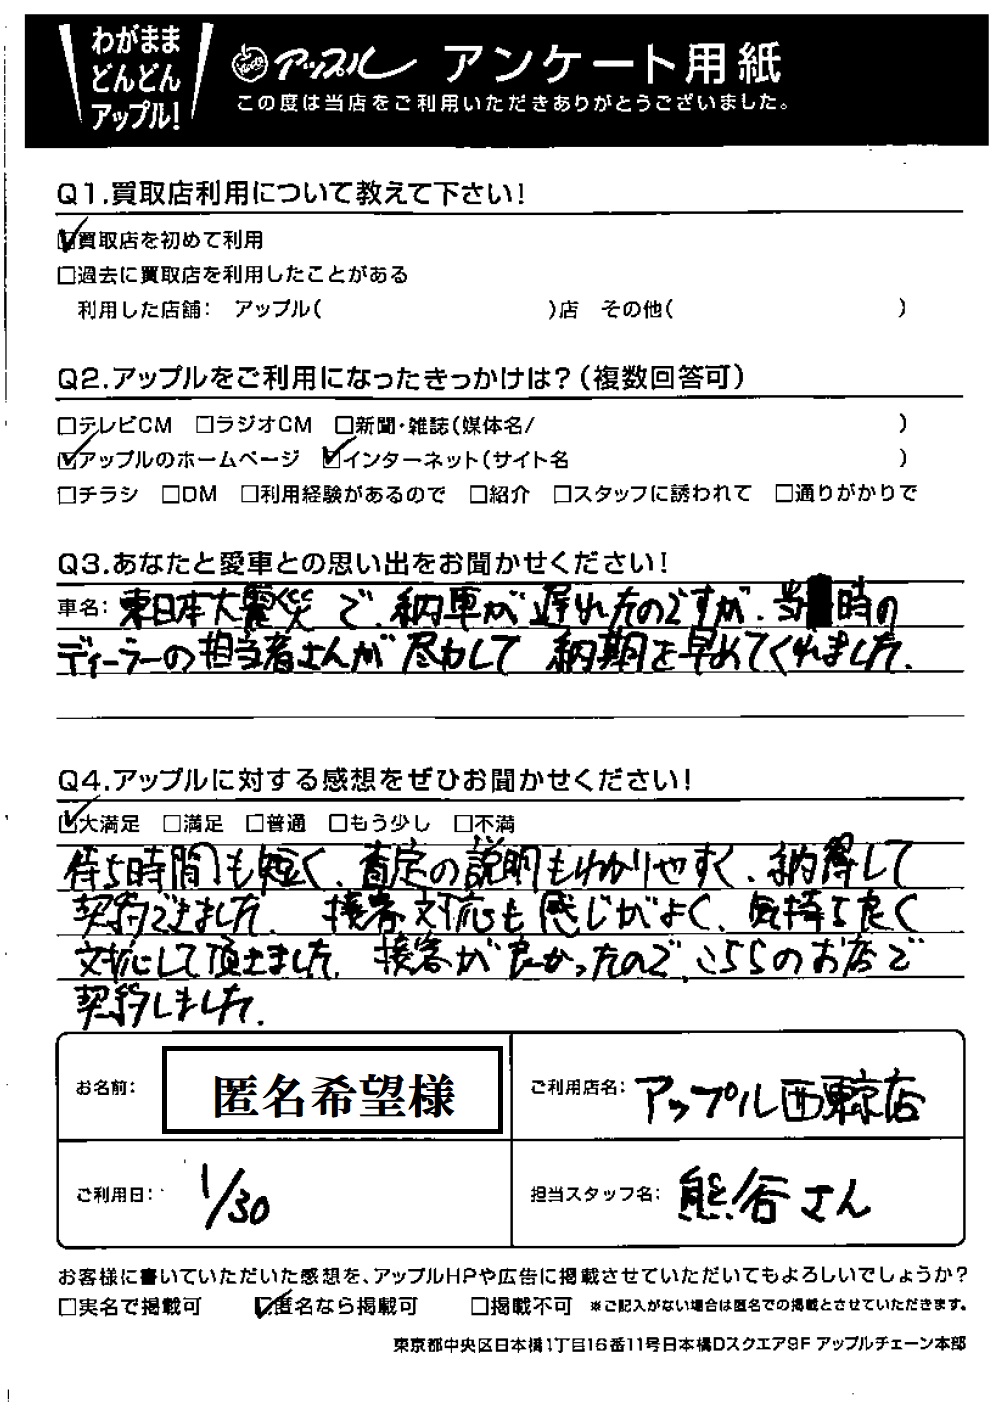 わがまま
どんどん
アップル!
アップル アンケート用紙
この度は当店をご利用いただきありがとうございました。
Q1.買取店利用について教えて下さい!
☑買取店を初めて利用
□過去に買取店を利用したことがある
利用した店舗: アップル( )店 その他( )
Q2.アップルをご利用になったきっかけは?(複数回答可)
□テレビCM □ラジオCM □新聞・雑誌(媒体名/ )
☑アップルのホームページ ☑インターネット(サイト名 )
□チラシ □DM □利用経験があるので □紹介 □スタッフに誘われて □通りがかりで
Q3.あなたと愛車との思い出をお聞かせください!
車名: 東日本大震災で、納車が遅れたのですが、当時の
ディーラーの担当者さんが尽力して納期を早めてくれました。
Q4.アップルに対する感想をぜひお聞かせください!
☑大満足 □満足 □普通 □もう少し □不満
待ち時間も短く、査定の説明もわかりやすく、納得して
契約できました。接客対応も感じがよく、気持ち良く
対応して頂きました。接客が良かったので、こちらのお店で
契約しました。
お名前: 匿名希望様
ご利用店名: アップル西東京店
ご利用日: 1/30
担当スタッフ名: 熊谷さん
お客様に書いていただいた感想を、アップルHPや広告に掲載させていただいてもよろしいでしょうか?
□実名で掲載可 ☑匿名なら掲載可 □掲載不可 ※ご記入がない場合は匿名での掲載とさせていただきます。
東京都中央区日本橋1丁目16番11号日本橋Dスクエア9F アップルチェーン本部